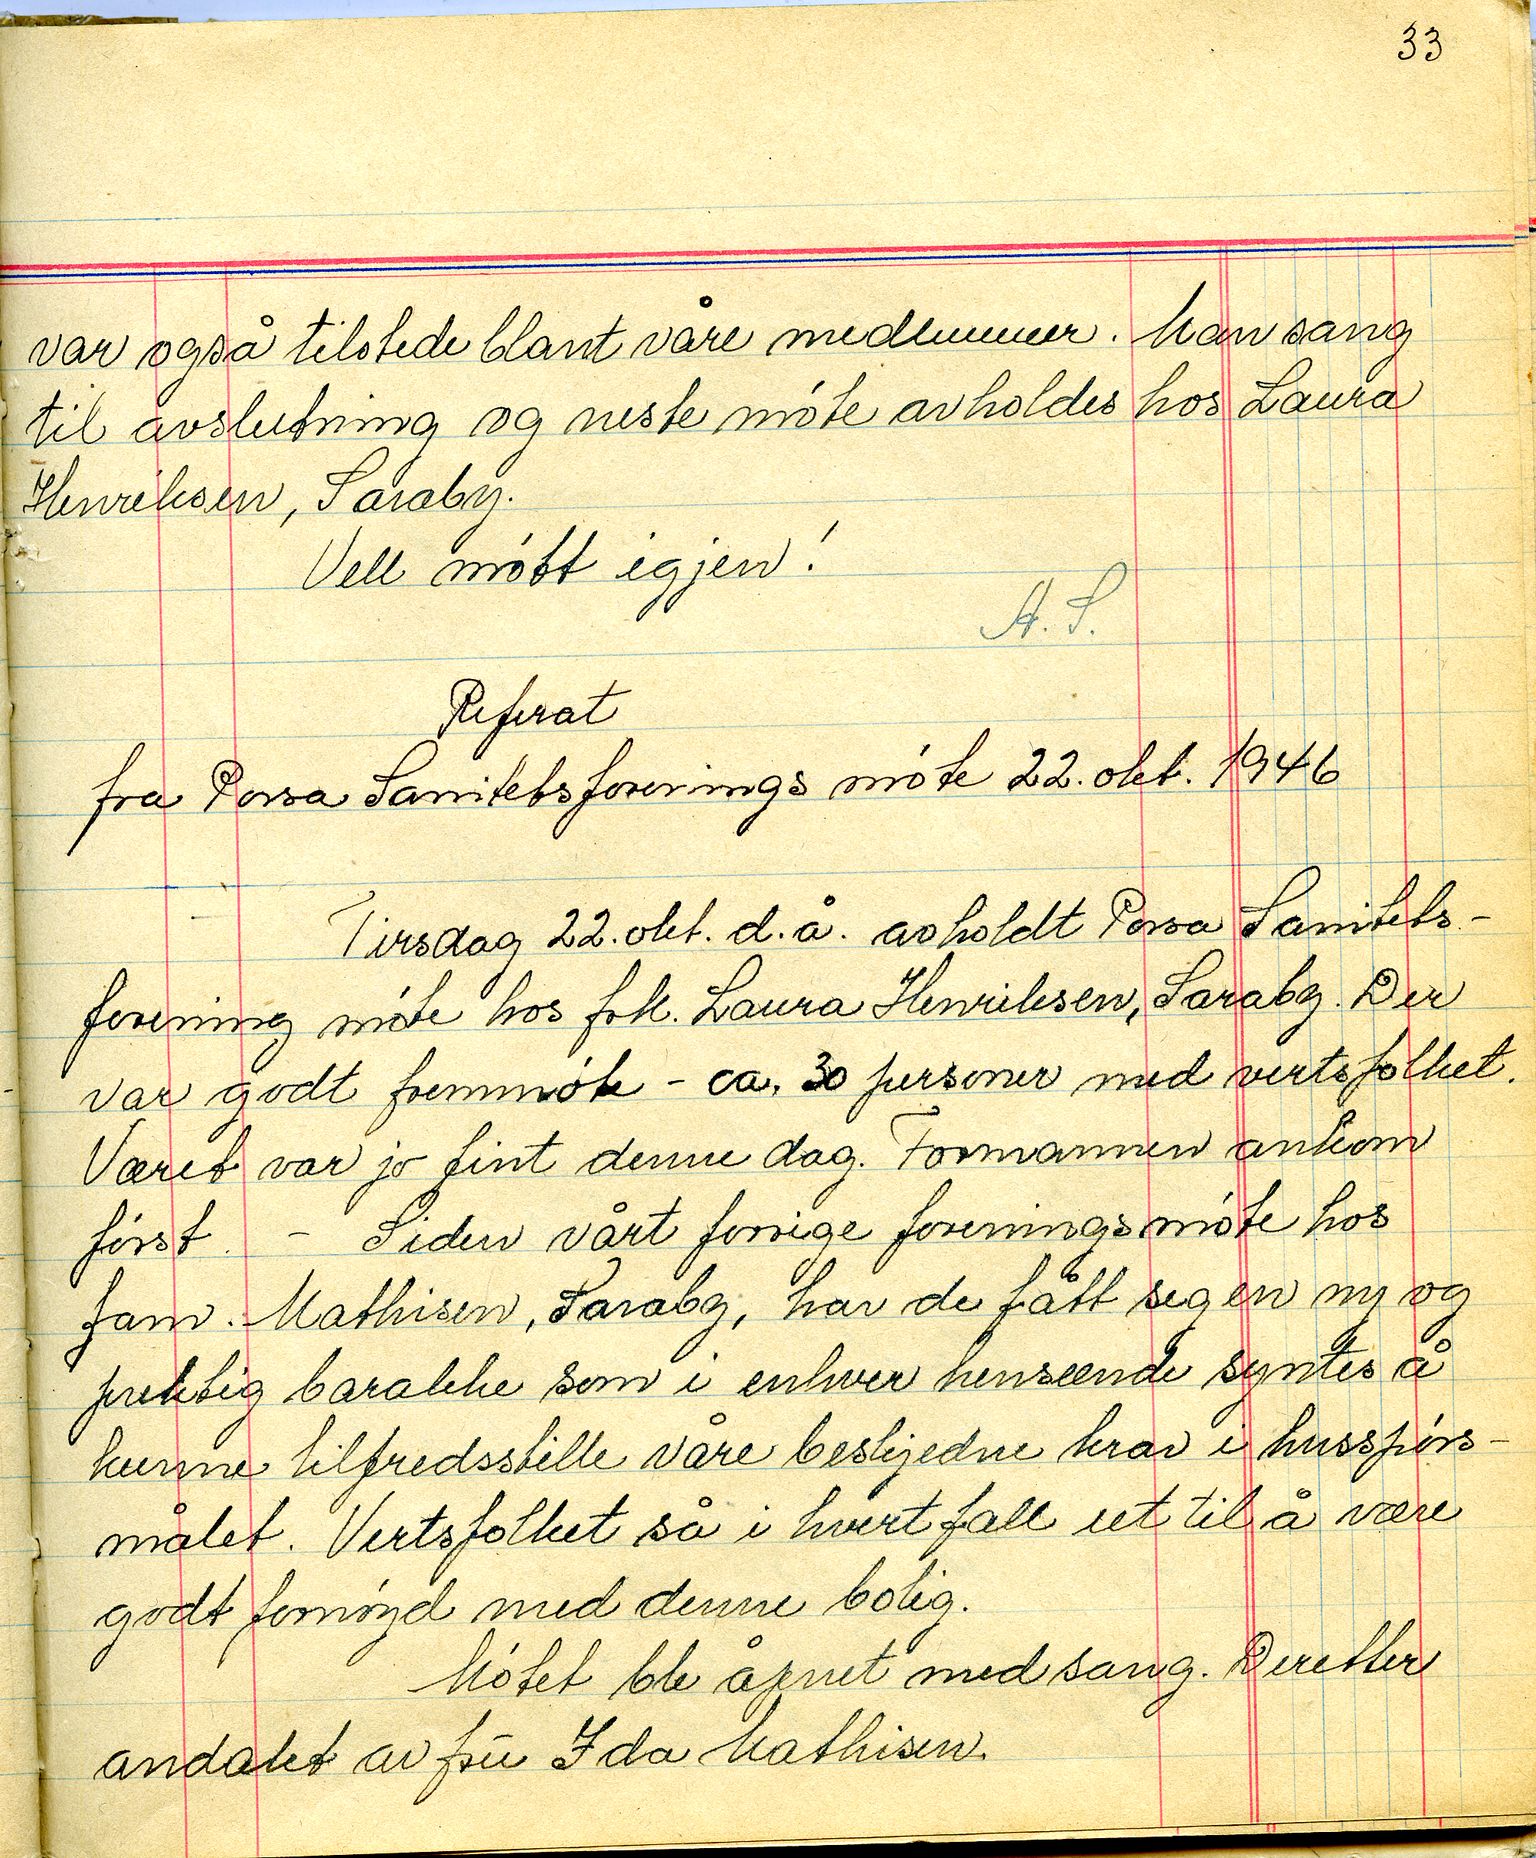 33
var også tilstede blant våre medlemmer. Man sang
til avslutning og neste møte avholdes hos Laura
Henriksen, Saraby.
Vell møtt igjen!
A. S.
Referat
fra Porsa Sanitetsforenings møte 22. okt. 1946
Tirsdag 22. okt. d.å. avholdt Porsa Sanitets-
forening møte hos frk. Laura Henriksen, Saraby. Der
var godt fremmøte - ca. 30 personer med vertsfolket.
Været var jo fint denne dag. Formannen ankom
først. - Siden vårt forrige foreningsmøte hos
fam. Mathisen, Saraby, har de fått seg en ny og
prektig barakke som i enhver henseende syntes å
kunne tilfredsstille våre beskjedne krav i husspørs-
målet. Vertsfolket så i hvert fall ut til å være
godt fornøyd med denne bolig.
Møtet ble åpnet med sang. Deretter
andakt av frū Ida Mathisen.